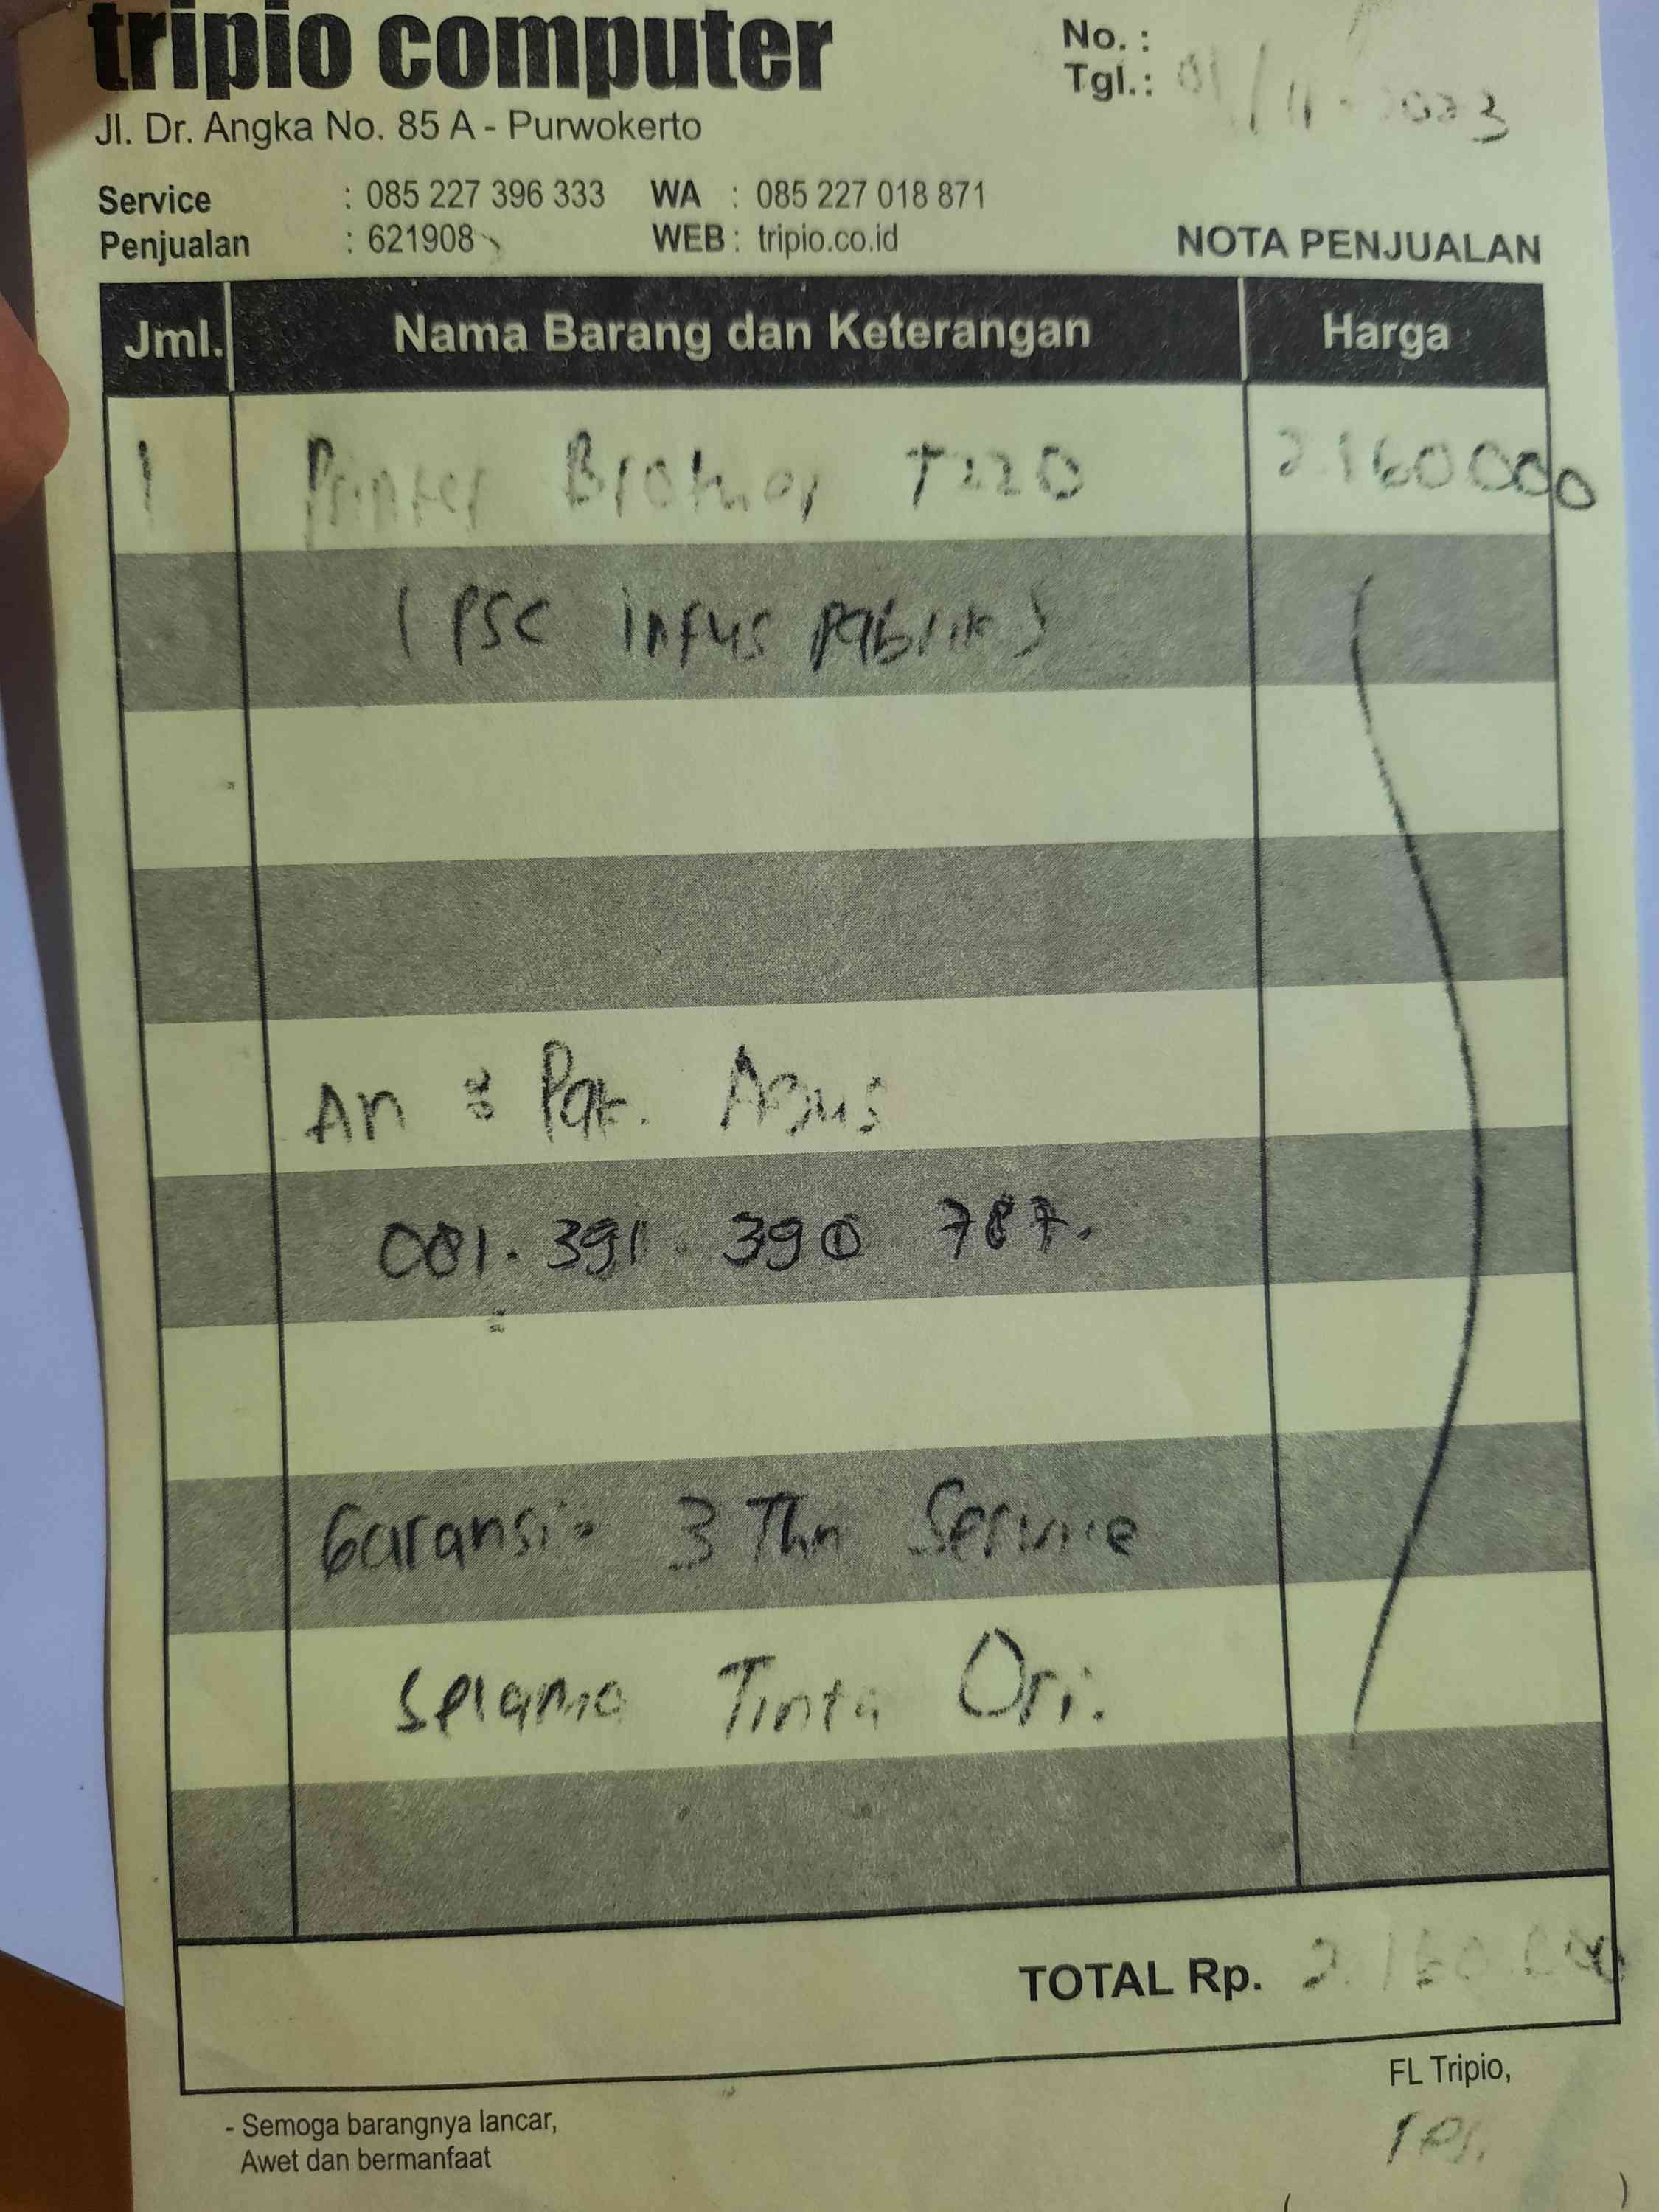 tripio computer
Jl. Dr. Angka No. 85 A - Purwokerto
No. :
Tgl.: 01/11-2023
Service : 085 227 396 333 WA : 085 227 018 871
Penjualan : 621908 WEB : tripio.co.id
NOTA PENJUALAN
Jml. Nama Barang dan Keterangan Harga
1 Printer Brother T220 2.160000
(PSC infus pabrik)
An : Pak. Agus
081.391.390 787.
Garansi: 3 Thn Service
selama Tinta Ori.
TOTAL Rp. 2.160.000
FL Tripio,
- Semoga barangnya lancar,
Awet dan bermanfaat
( )